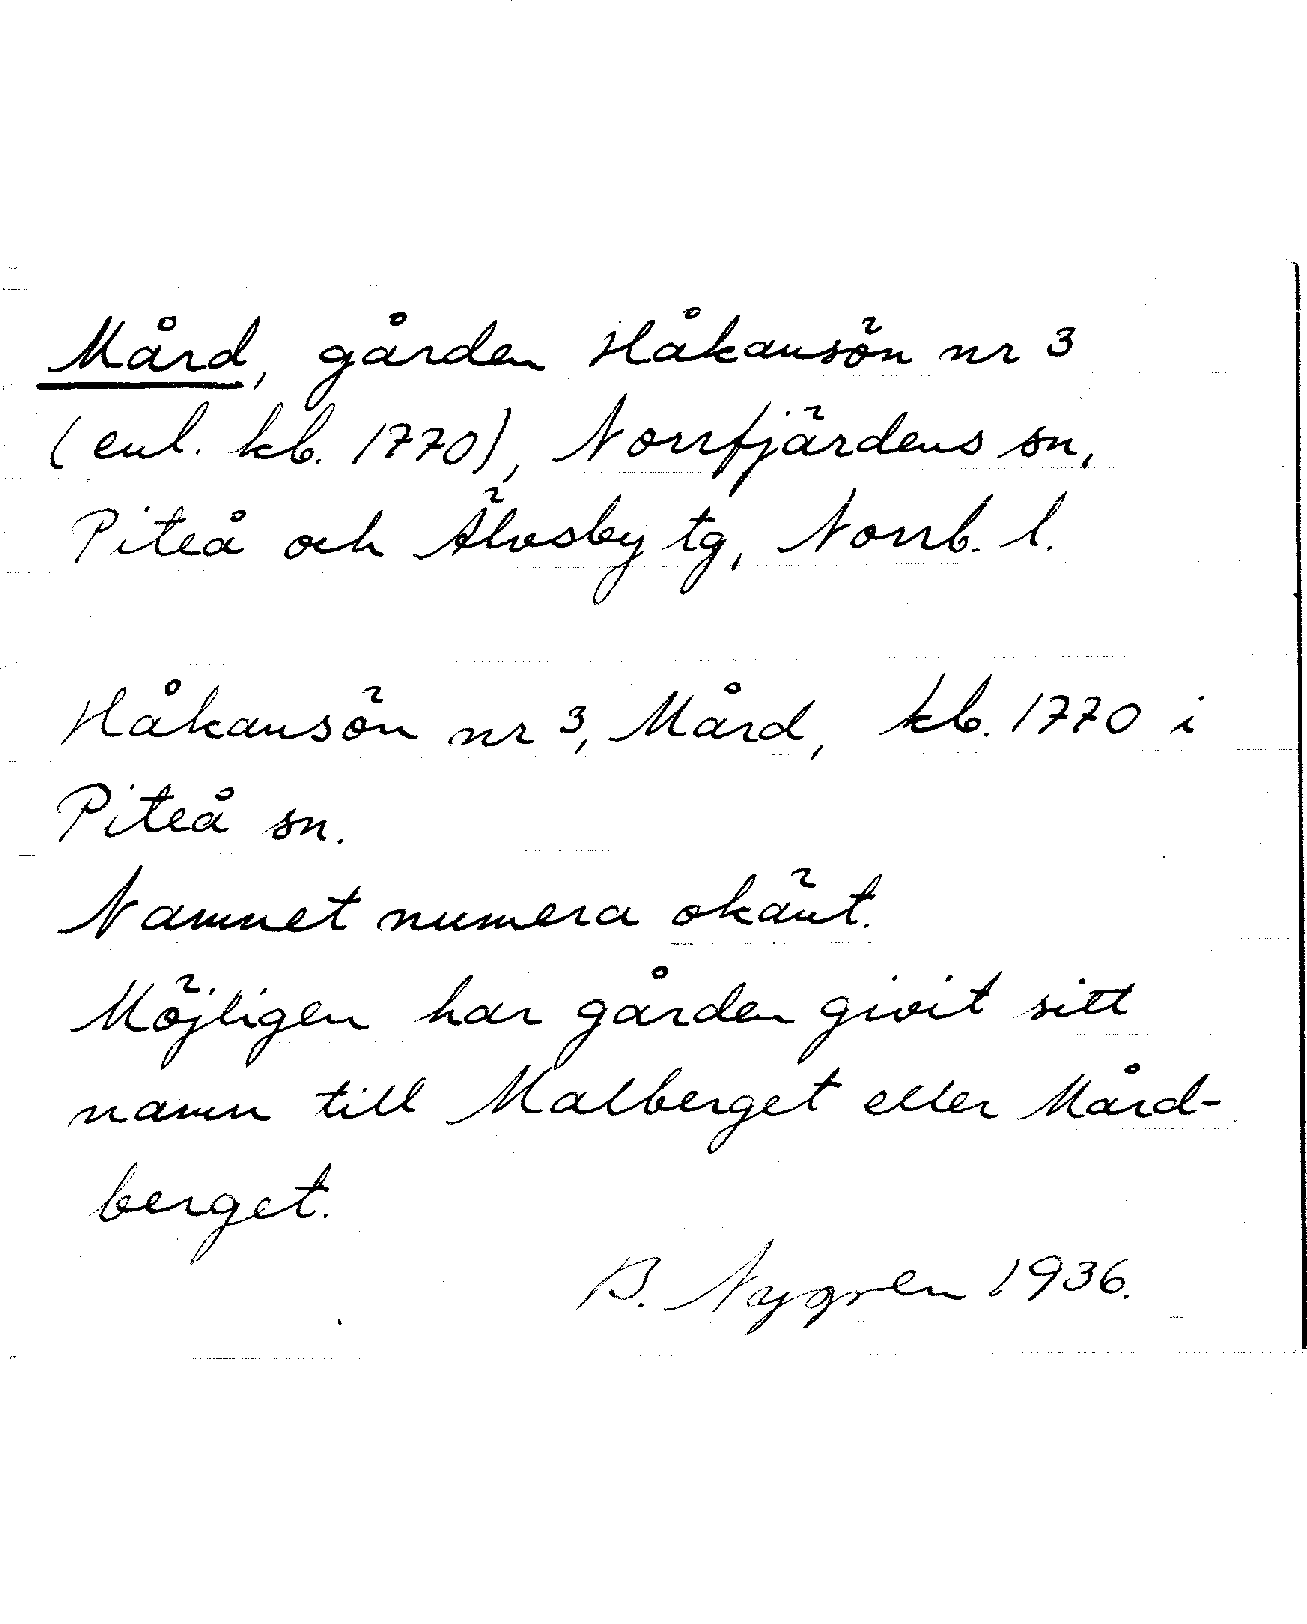 Mård, gården Håkansön nr 3
(enl. kb. 1770), Norrfjärdens sn,
Piteå och Älvsby tg, Norrb. l.
Håkansön nr 3, Mård, kb. 1770 i
Piteå sn.
Namnet numera okänt.
Möjligen har gården givit sitt
namn till Malberget eller Mård-
berget.
B. Nygren 1936.